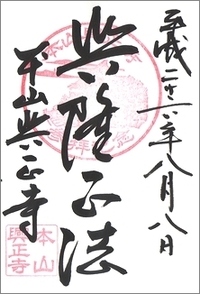 平成二十六年八月八日
興隆正法
本山興正寺
本山
興正寺